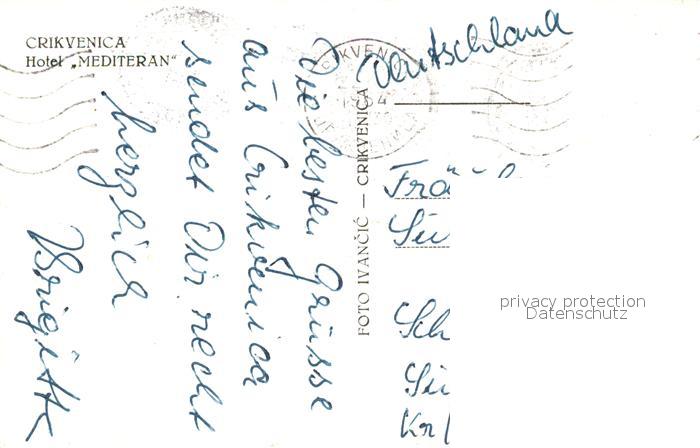 CRIKVENICA
Hotel „MEDITERAN“
Die besten Grüsse
aus Crikvenica
sendet Dir recht
herzlich
Brigitte
FOTO IVANČIĆ — CRIKVENICA
Deutschland
Frä
Su
Sch
Su
Kr
privacy protection
Datenschutz